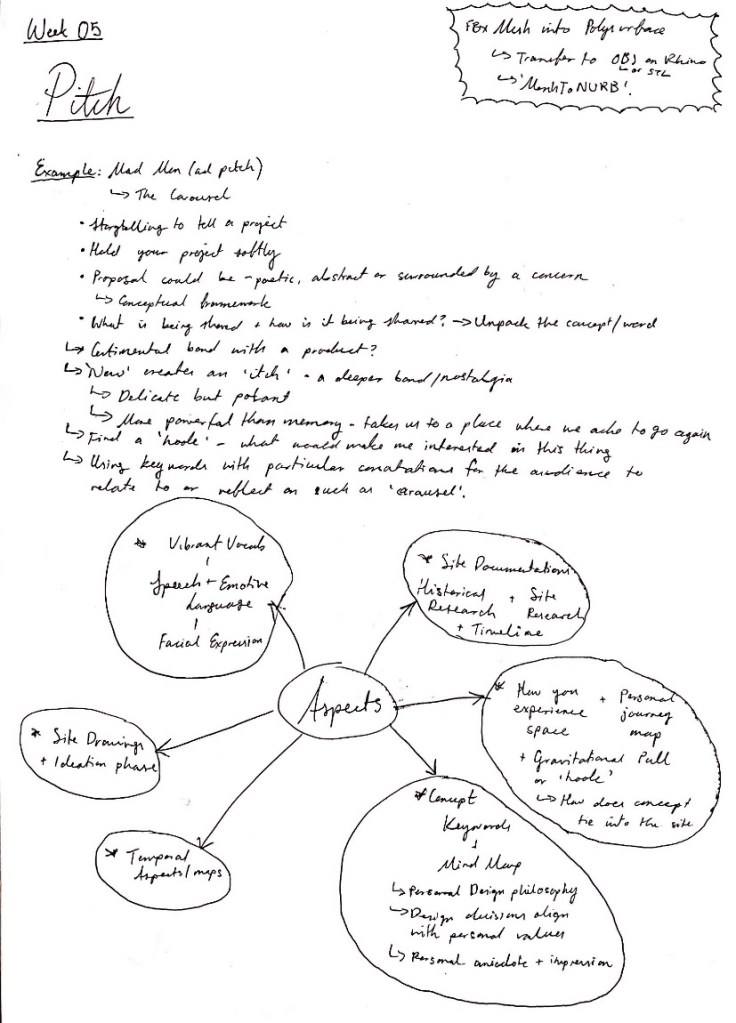 Week 05
Pitch
FBX Mesh into Polysurface
↳ Transfer to OBJ on Rhino
↳ or STL
↳ 'MeshToNURB'.
Example: Mad Men (ad pitch)
↳ The Carousel
• Storytelling to tell a project
• Hold your project softly
• Proposal could be - poetic, abstract or surrounded by a concern
↳ Conceptual framework
• What is being shared + how is it being shared? → Unpack the concept/word
↳ Centimental bond with a product?
↳ 'New' creates an 'itch' - a deeper bond/nostalgia
↳ Delicate but potent
↳ More powerful than memory - takes us to a place where we ache to go again
↳ Find a 'hook' - what would make me interested in this thing
↳ Using keywords with particular conotations for the audience to
relate to or reflect on such as 'carousel'.
* Vibrant Vocals
Speech + Emotive
Language
Facial Expression
* Site Documentations
Historical + Site
Research Research
+ Timeline
Aspects
* How you + Personal
experience journey
space map
+ Gravitational Pull
or 'hook'
↳ How does concept
tie into the site
* Site Drawings
+ Ideation phase
* Temporal
Aspects/maps
* Concept
Keywords
↓
Mind Map
↳ Personal Design philosophy
↳ Design decisions align
with personal values
↳ Personal anicdote + impression